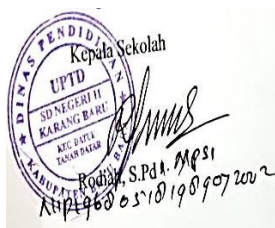 Kepala Sekolah
DINAS PENDIDI
UPTD
SD NEGERI 11
KARANG BARU
KEC DATUK
TANAH DATAR
KABUPATEN BA
Rodiah, S.Pd
Nip 196805181989072002